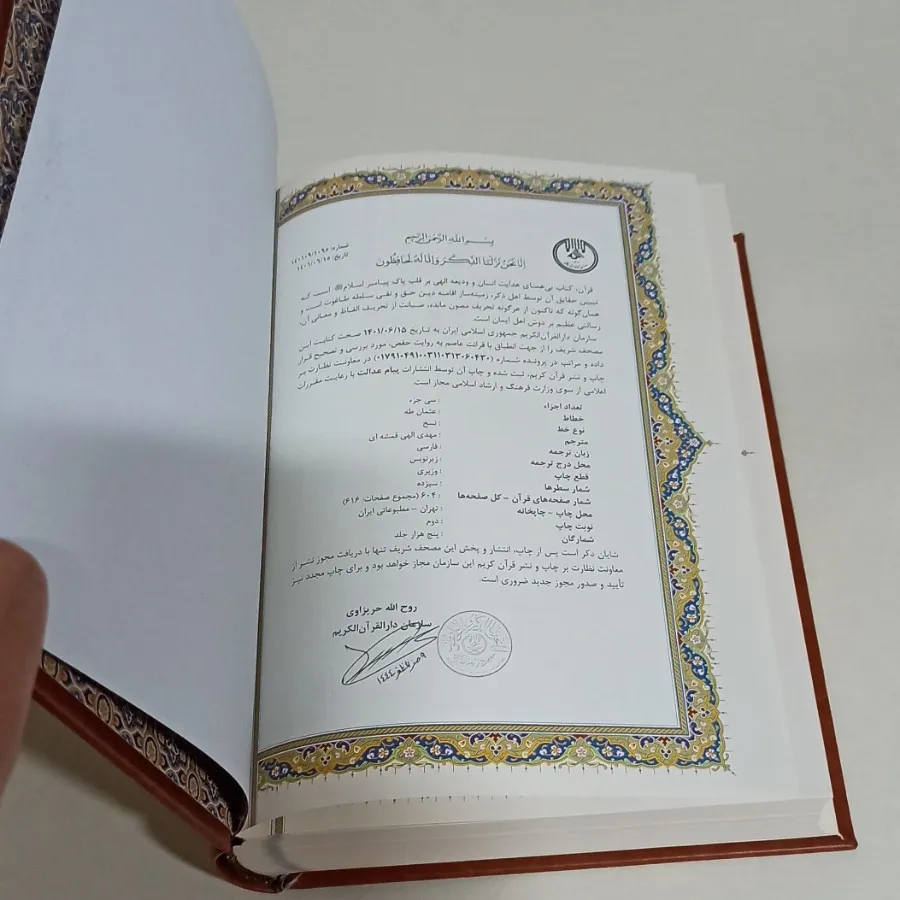 بسم الله الرحمن الرحیم
انا نحن نزلنا الذکر وانا له لحافظون
شماره: ۱۴۰۱۰۹/۲۰۹۶
تاریخ: ۱۴۰۱/۰۶/۱۵
قرآن، کتاب بی‌همتای هدایت انسان و ودیعه الهی بر قلب پاک پیامبر اسلام است که
تبیین حقایق آن توسط اهل ذکر، زمینه‌ساز اقامه دیـن حـق و نفـی سـلطه طـاغوت است و
همان‌گونه که تاکنون از هرگونه تحریف مصون مانده، صیانت از تحریـف الفـاظ و معـانی آن،
رسالتی عظیم بر دوش اهل ایمان است.
سازمان دارالقرآن‌الکریم جمهوری اسلامی ایران به تاریخ ۱۴۰۱/۰۶/۱۵ صـحت کتابـت ایـن
مصحف شریف را از جهت انطباق با قرائت عاصم به روایت حفص، مورد بررسی و تصحیح قرار
داده و مراتب در پرونده شماره (۰۱۷۹۱۰۴۹۱۰۰۳۱۱۰۳۱۳۰۶۰۴۳۰) در معاونت نظارت بـر
چاپ و نشر قرآن کریم، ثبت شده و چاپ آن توسط انتشارات پیام عدالت با رعایـت مقـررات
اعلامی از سوی وزارت فرهنگ و ارشاد اسلامی مجاز است.
تعداد اجزاء : سی جزء
خطاط : عثمان طه
نوع خط : نسخ
مترجم : مهدی الهی قمشه ای
زبان ترجمه : فارسی
محل درج ترجمه : زیرنویس
قطع چاپ : وزیری
شمار سطرها : سیزده
شمار صفحه‌های قرآن - کل صفحه‌ها : ۶۰۴ (مجموع صفحات: ۶۱۶)
محل چاپ - چاپخانه : تهران - مطبوعاتی ایران
نوبت چاپ : دوم
شمارگان : پنج هزار جلد
شایان ذکر است پس از چاپ، انتشار و پخش این مصحف شریف تنها با دریافت مجوز نشـر از
معاونت نظارت بر چاپ و نشر قرآن کریم این سازمان مجاز خواهد بود و برای چاپ مجدد نیـز
تأیید و صدور مجوز جدید ضروری است.
روح الله حریزاوی
سازمان دارالقرآن‌الکریم
۱۴۴۴